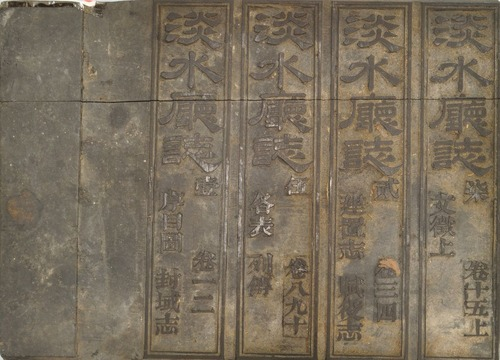 淡水廳誌
柒
卷十五上
文徵上
淡水廳誌
貳
卷三四
建置志
賦役志
淡水廳誌
伍
卷八九十
各表
列傳
淡水廳誌
壹
卷一二
序目圖
封域志